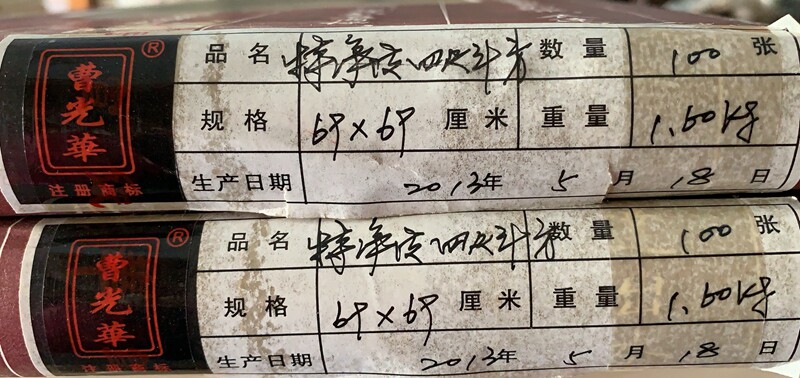 曹光華®
注册商标
品名 特净皮四尺斗方 数量 100 张
规格 69×69 厘米 重量 1.60kg
生产日期 2013年 5 月 18 日
曹光華®
注册商标
品名 特净皮四尺斗方 数量 100 张
规格 69×69 厘米 重量 1.60kg
生产日期 2013年 5 月 18 日